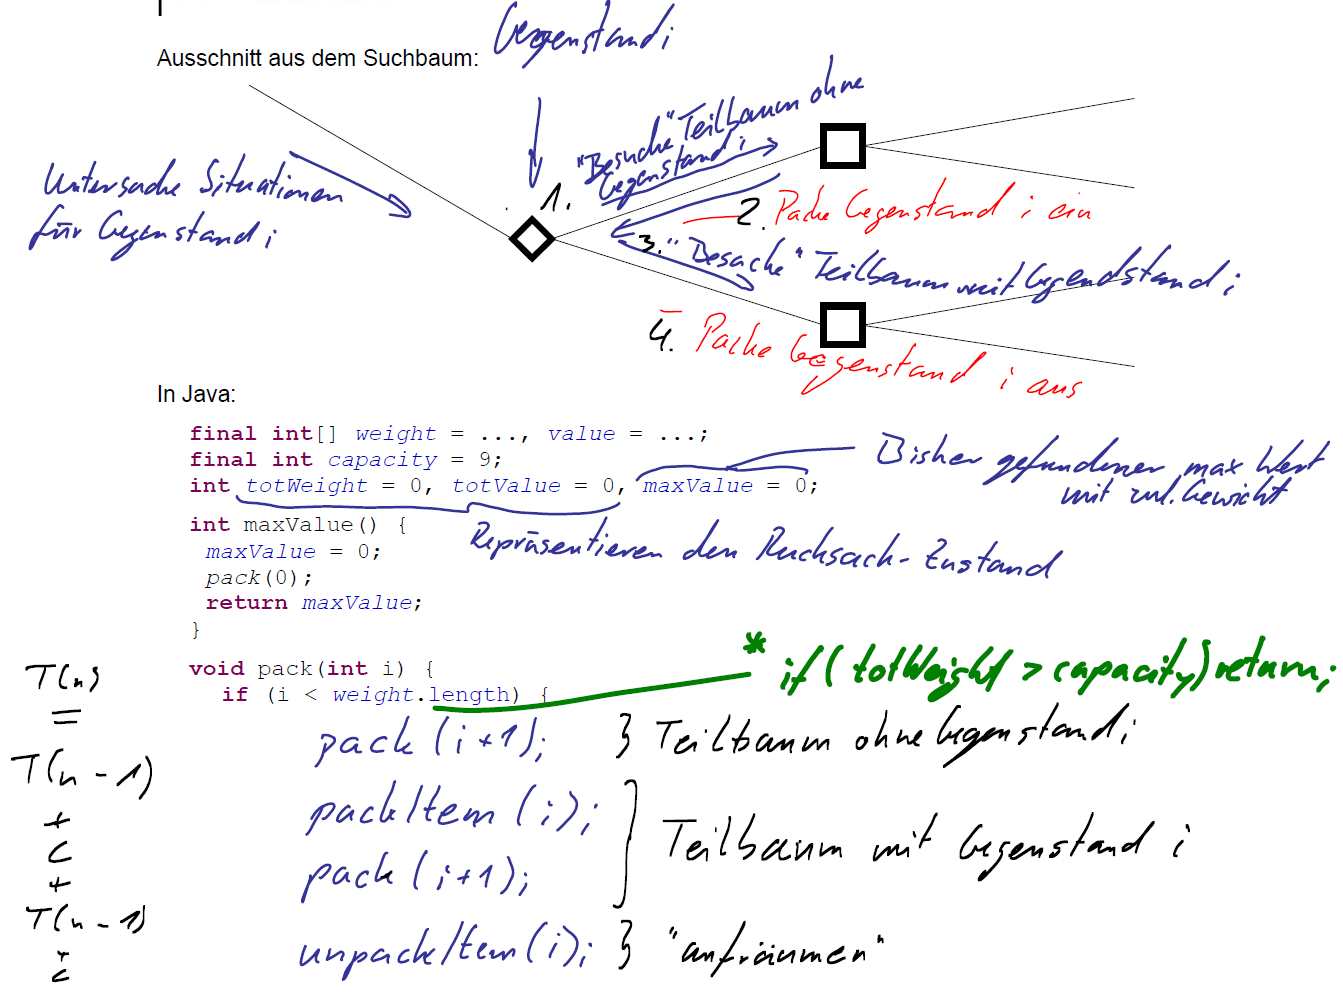 Gegenstand i
Ausschnitt aus dem Suchbaum:
Untersuche Situationen
für Gegenstand i
1.
"Besuche" Teilbaum ohne
Gegenstand i
2. Packe Gegenstand i ein
3. "Besuche" Teilbaum mit Gegendstand i
4. Packe Gegenstand i aus
In Java:
final int[] weight = ..., value = ...;
final int capacity = 9;
int totWeight = 0, totValue = 0, maxValue = 0;
Bisher gefundener max Wert
mit zul. Gewicht
Repräsentieren den Rucksack-Zustand
int maxValue() {
maxValue = 0;
pack(0);
return maxValue;
}
void pack(int i) {
if (i < weight.length) {
* if (totWeight > capacity) return;
pack (i+1); } Teilbaum ohne Gegenstand i
packItem (i);
pack (i+1);
} Teilbaum mit Gegenstand i
unpackItem (i); } "aufräumen"
T(n)
=
T(n-1)
+
c
+
T(n-1)
+
c